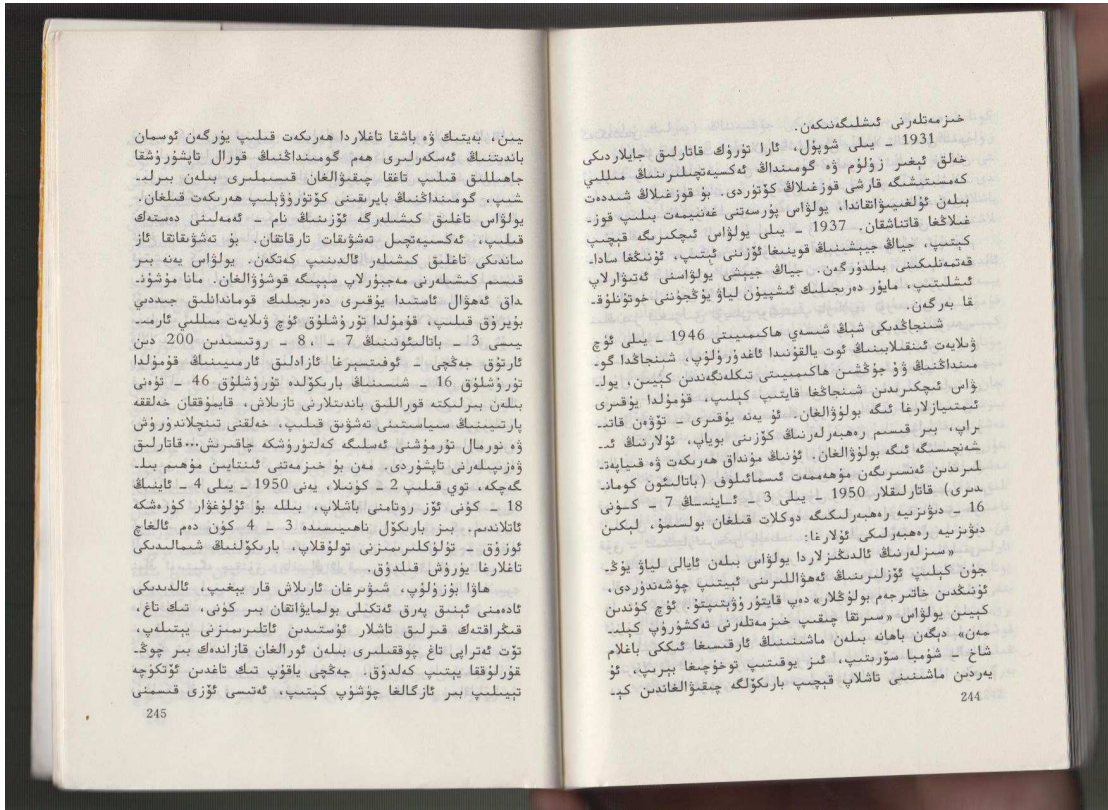 خىزمەتلەرنى ئىشلىگەنىكەن.
1931 ـ يىلى شوپۇل، ئارا تۈرۈك قاتارلىق جايلاردىكى
خەلق ئېغىر زۇلۇم ۋە گومىنداڭ ئەكسىيەتچىلىرىنىڭ مىللىي
كەمسىتىشىگە قارشى قوزغىلاڭ كۆتۈردى. بۇ قوزغىلاڭ شىددەت
بىلەن ئۇلغىيىۋاتقاندا، يولۋاس پۇرسەتنى غەنىيمەت بىلىپ قوز-
غىلاڭغا قاتناشقان. 1937 ـ يىلى يولۋاس ئىچكىرىگە قېچىپ
كېتىپ، جياڭ جيېشىنىڭ قوينىغا ئۆزىنى ئېتىپ، ئۇنىڭغا سادا-
قەتمەنلىكىنى بىلدۈرگەن. جياڭ جيېشى يولۋاسنى ئەتىۋارلاپ
ئىشلىتىپ، مايور دەرىجىلىك ئىشپىيون لياۋ يۇڭجۈننى خوتۇنلۇق-
قا بەرگەن.
شىنجاڭدىكى شىڭ شىسەي ھاكىمىيىتى 1946 ـ يىلى ئۈچ
ۋىلايەت ئىنقىلابىنىڭ ئوت يالقۇنىدا ئاغدۇرۇلۇپ، شىنجاڭدا گو-
مىنداڭنىڭ ۋۇ جۇڭشىن ھاكىمىيىتى تىكلەنگەندىن كېيىن، يول-
ۋاس ئىچكىرىدىن شىنجاڭغا قايتىپ كېلىپ، قۇمۇلدا يۇقىرى
ئىمتىيازلارغا ئىگە بولۇۋالغان. ئۇ يەنە يۇقىرى ـ تۆۋەن قات-
راپ، بىر قىسىم رەھبەرلەرنىڭ كۆزىنى بوياپ، ئۇلارنىڭ ئى-
شەنچىسىگە ئىگە بولۇۋالغان. ئۇنىڭ مۇنداق ھەرىكەت ۋە قىياپەت-
لىرىدىن ئەنسىرىگەن مۇھەممەت ئىسمائىلوف (باتالىئون كومان-
دىرى) قاتارلىقلار 1950 ـ يىلى 3 ـ ئاينىڭ 7 ـ كۈنى
16 ـ دىۋىزىيە رەھبەرلىكىگە دوكلات قىلغان بولسىمۇ، لېكىن
دىۋىزىيە رەھبەرلىكى ئۇلارغا:
«سىزلەرنىڭ ئالدىڭىزلاردا يولۋاس بىلەن ئايالى لياۋ يۇڭ-
جۈن كېلىپ ئۆزلىرىنىڭ ئەھۋاللىرىنى ئېيتىپ چۈشەندۈردى،
ئۇنىڭدىن خاتىرجەم بولۇڭلار» دەپ قايتۇرۇۋېتىپتۇ. ئۈچ كۈندىن
كېيىن يولۋاس «سىرتقا چىقىپ خىزمەتلەرنى تەكشۈرۈپ كېلى-
مەن» دېگەن باھانە بىلەن ماشىنىنىڭ ئارقىسىغا ئىككى باغلام
شاخ ـ شۈمبا سۆرىتىپ، ئىز يوقىتىپ توخۇچىغا بېرىپ، ئۇ
يەردىن ماشىنىنى تاشلاپ قېچىپ بارىكۆلگە چىقىۋالغاندىن كې-
244
يىن، بەيتىك ۋە باشقا تاغلاردا ھەرىكەت قىلىپ يۈرگەن ئوسمان
باندىتنىڭ ئەسكەرلىرى ھەم گومىنداڭنىڭ قورال تاپشۇرۇشقا
جاھىللىق قىلىپ تاغقا چىقىۋالغان قىسىملىرى بىلەن بىرلى-
شىپ، گومىنداڭنىڭ بايرىقىنى كۆتۈرۈۋېلىپ ھەرىكەت قىلغان.
يولۋاس تاغلىق كىشىلەرگە ئۆزىنىڭ نام ـ ئەمەلىنى دەستەك
قىلىپ، ئەكسىيەتچىل تەشۋىقات تارقاتقان. بۇ تەشۋىقاتقا ئاز
ساندىكى تاغلىق كىشىلەر ئالدىنىپ كەتكەن. يولۋاس يەنە بىر
قىسىم كىشىلەرنى مەجبۇرلاپ سېپىگە قوشۇۋالغان. مانا مۇشۇن-
داق ئەھۋال ئاستىدا يۇقىرى دەرىجىلىك قوماندانلىق جىددىي
بۇيرۇق قىلىپ، قۇمۇلدا تۇرۇشلۇق ئۈچ ۋىلايەت مىللىي ئارمى-
يىسى 3 ـ باتالىئونىنىڭ 7 ـ، 8 ـ روتىسىدىن 200 دىن
ئارتۇق جەڭچى ـ ئوفىتسېرغا ئازادلىق ئارمىيىنىڭ قۇمۇلدا
تۇرۇشلۇق 16 ـ شىسىنىڭ بارىكۆلدە تۇرۇشلۇق 46 ـ تۈەنى
بىلەن بىرلىكتە قوراللىق باندىتلارنى تازىلاش، قايمۇققان خەلققە
پارتىيىنىڭ سىياسىتىنى تەشۋىق قىلىپ، خەلقنى تىنچلاندۇرۇش
ۋە نورمال تۇرمۇشنى ئەسلىگە كەلتۈرۈشكە چاقىرىش...قاتارلىق
ۋەزىپىلەرنى تاپشۇردى. مەن بۇ خىزمەتنى ئىنتايىن مۇھىم بىل-
گەچكە، توي قىلىپ 2 ـ كۈنىلا، يەنى 1950 ـ يىلى 4 ـ ئاينىڭ
18 ـ كۈنى ئۆز روتامنى باشلاپ، بىللە بۇ ئۇلۇغۋار كۈرەشكە
ئاتلاندىم. بىز بارىكۆل ناھىيىسىدە 3 ـ 4 كۈن دەم ئالغاچ
ئوزۇق ـ تۈلۈكلىرىمىزنى تولۇقلاپ، بارىكۆلنىڭ شىمالىدىكى
تاغلارغا يۈرۈش قىلدۇق.
ھاۋا بۇزۇلۇپ، شىۋىرغان ئارىلاش قار يېغىپ، ئالدىدىكى
ئادەمنى ئېنىق پەرق ئەتكىلى بولمايۋاتقان بىر كۈنى، تىك تاغ،
قىڭراقتەك قىرلىق تاشلار ئۈستىدىن ئاتلىرىمىزنى يېتىلەپ،
تۆت ئەتراپى تاغ چوققىلىرى بىلەن ئورالغان قازاندەك بىر چوڭ-
قۇرلۇققا يېتىپ كەلدۇق. جەڭچى ياقۇپ تىك تاغدىن ئۆتكۈچە
تېيىلىپ بىر ئازگالغا چۈشۈپ كېتىپ، ئەتىسى ئۆزى قىسمنى
245